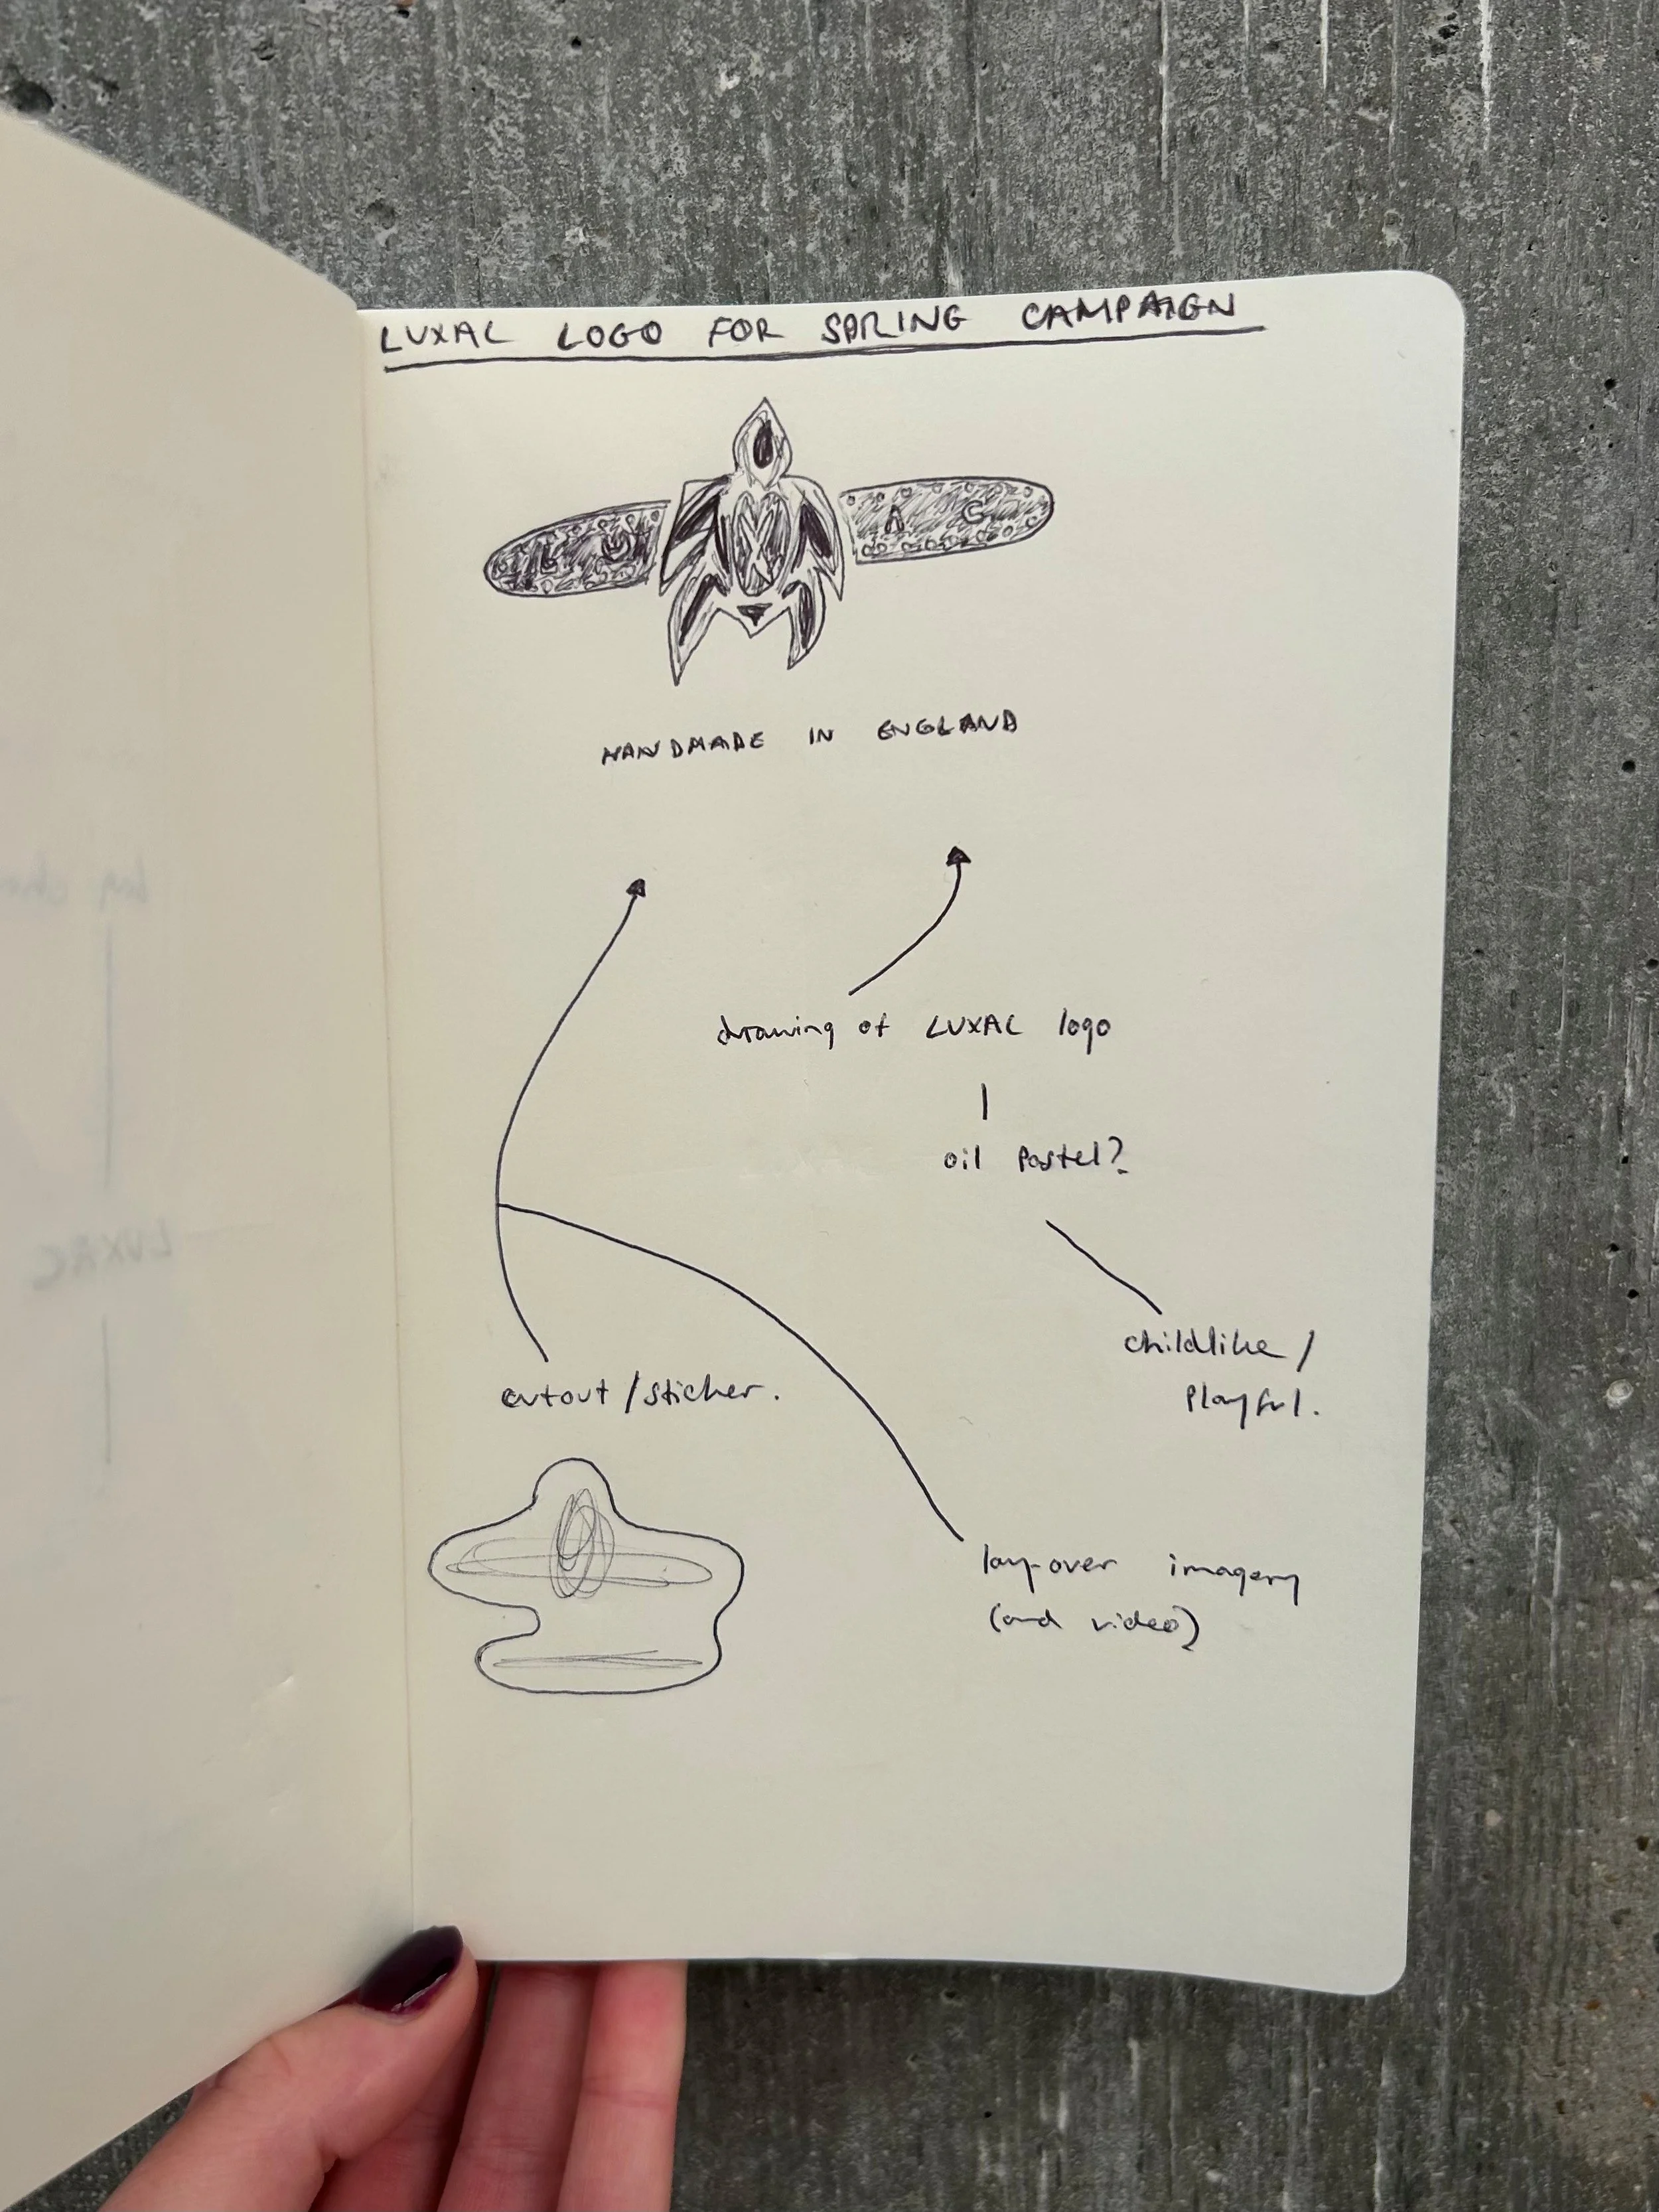 LUXAC LOGO FOR SPRING CAMPAIGN
L U X A C
HANDMADE IN ENGLAND
drawing of LUXAC logo
oil pastel?
childlike /
playful.
cutout / sticker.
lay-over imagery
(and video)
LUXAC